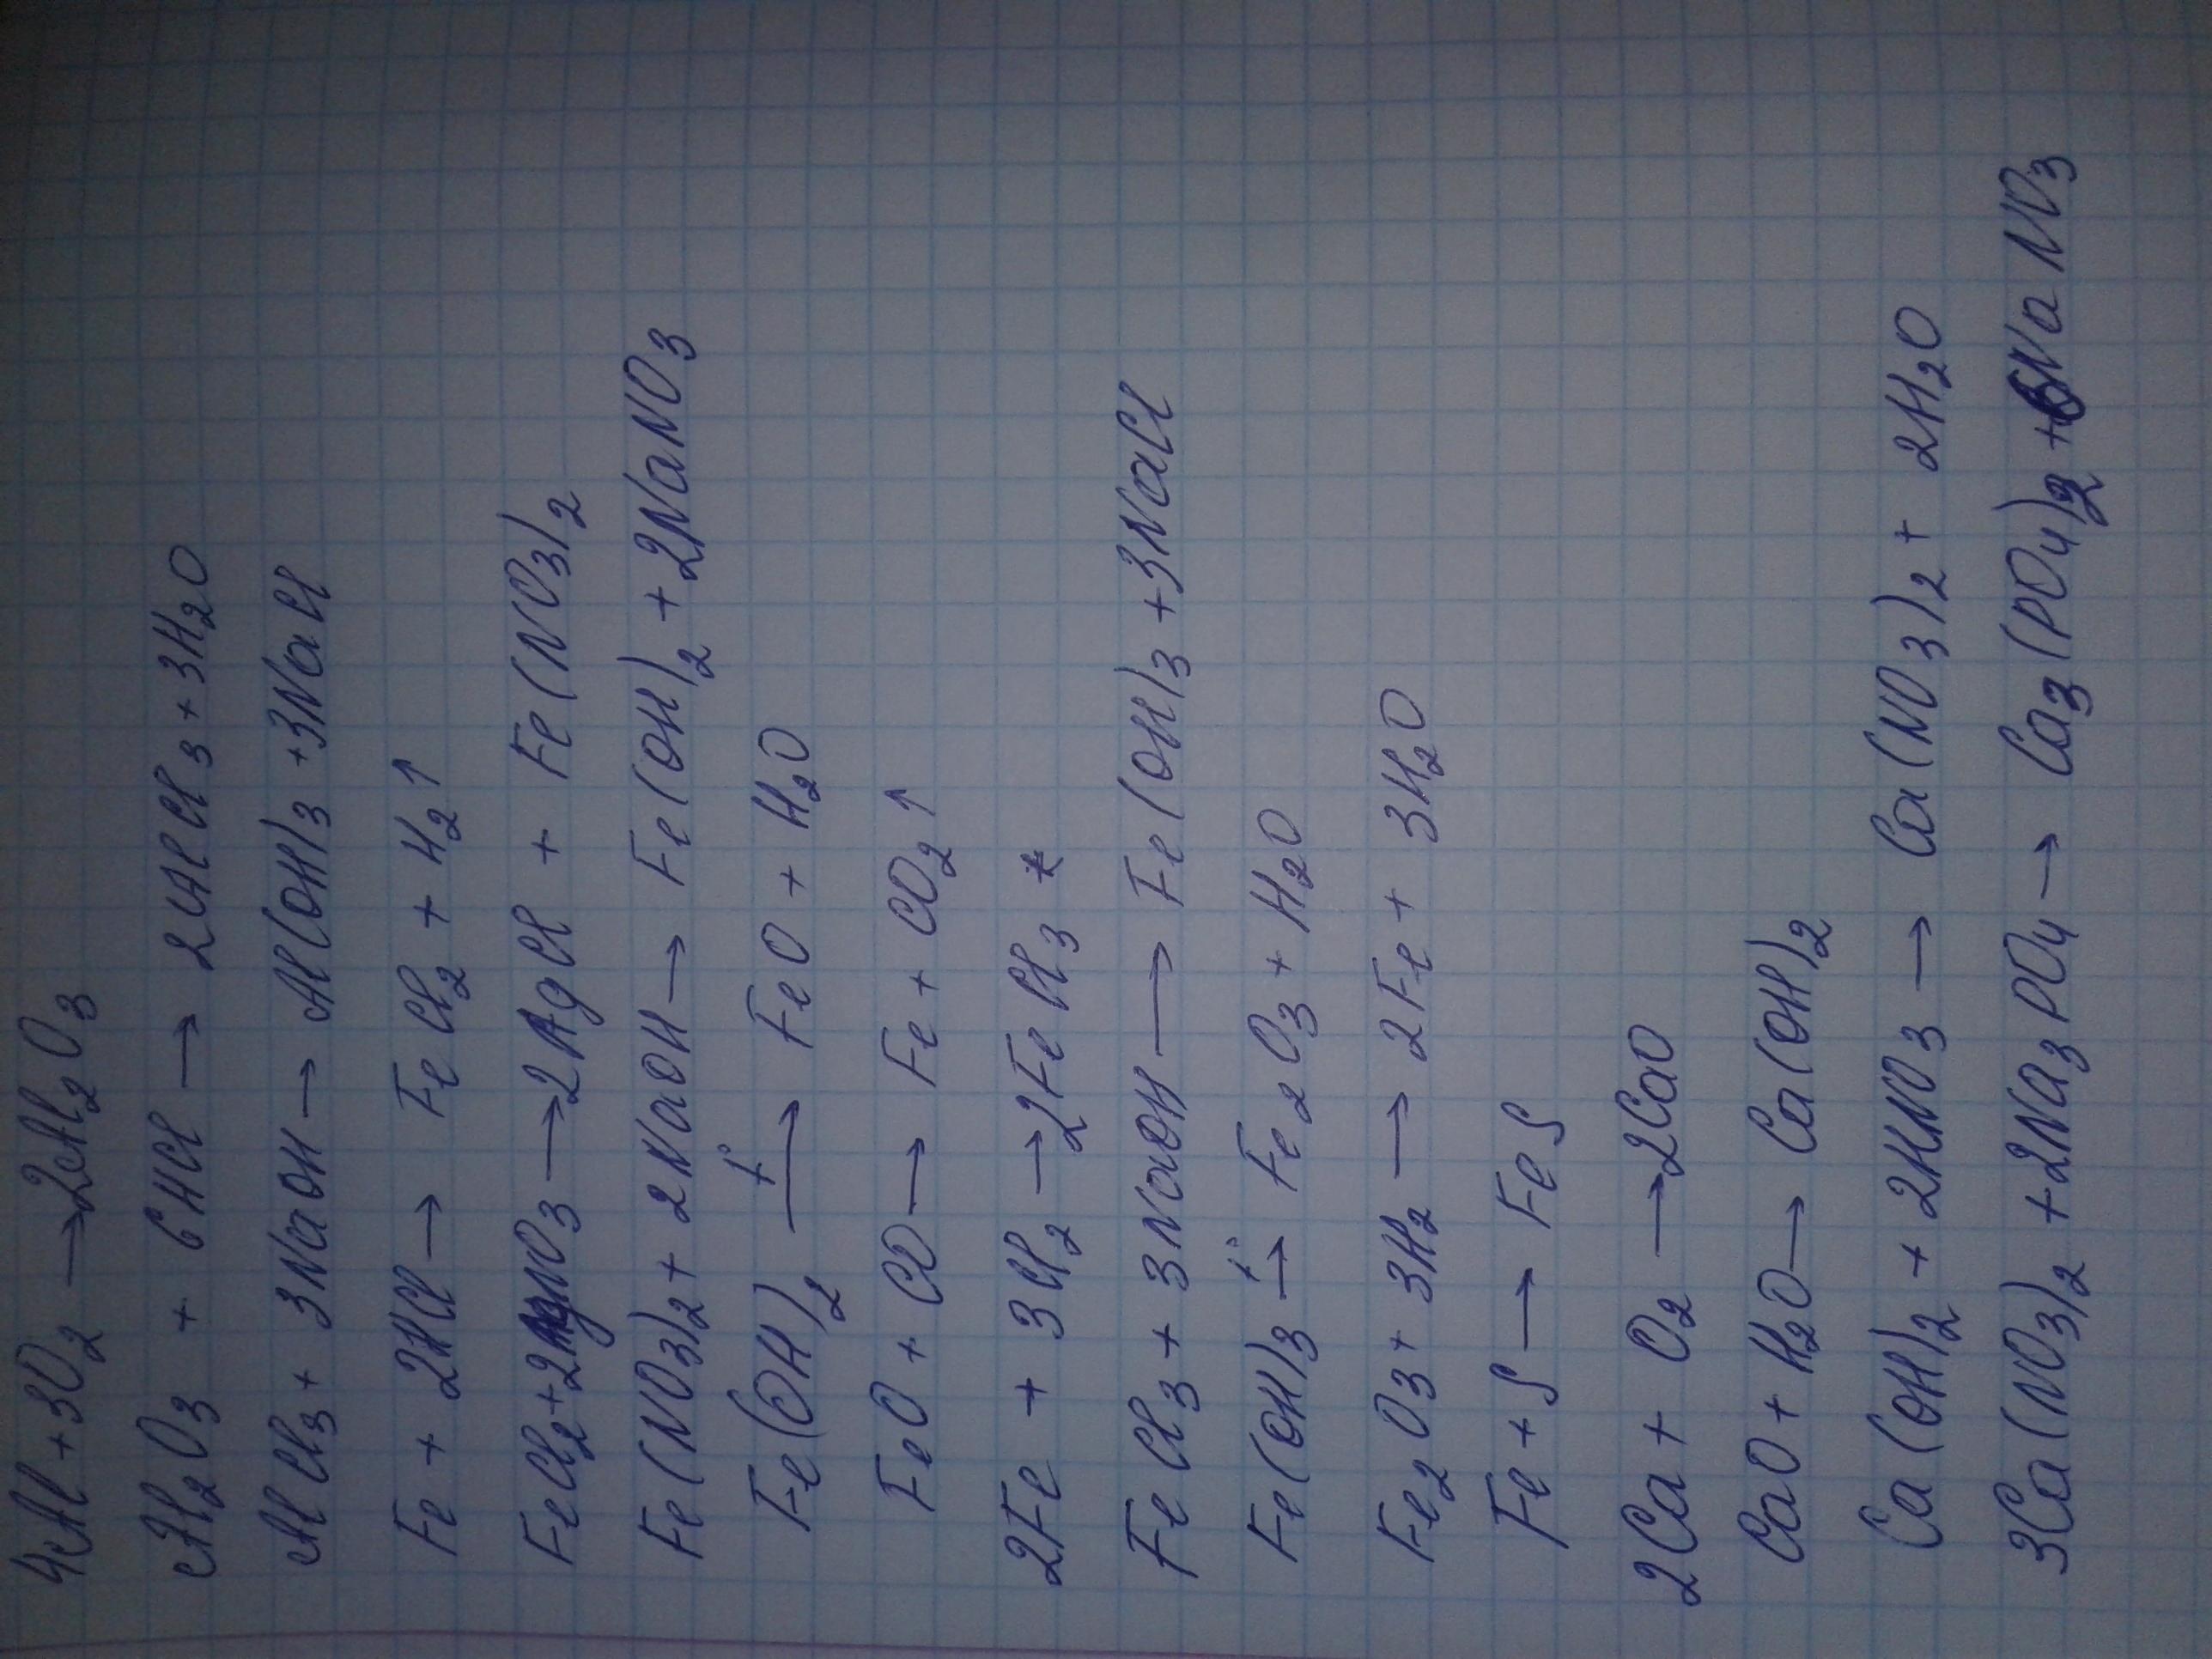 4Al + 3O₂ → 2Al₂O₃
Al₂O₃ + 6HCl → 2AlCl₃ + 3H₂O
AlCl₃ + 3NaOH → Al(OH)₃ + 3NaCl
Fe + 2HCl → FeCl₂ + H₂↑
FeCl₂ + 2AgNO₃ → 2AgCl + Fe(NO₃)₂
Fe(NO₃)₂ + 2NaOH → Fe(OH)₂ + 2NaNO₃
Fe(OH)₂ —t°→ FeO + H₂O
FeO + CO → Fe + CO₂↑
2Fe + 3Cl₂ → 2FeCl₃ *
FeCl₃ + 3NaOH → Fe(OH)₃ + 3NaCl
Fe(OH)₃ —t°→ Fe₂O₃ + H₂O
Fe₂O₃ + 3H₂ → 2Fe + 3H₂O
Fe + S → FeS
2Ca + O₂ → 2CaO
CaO + H₂O → Ca(OH)₂
Ca(OH)₂ + 2HNO₃ → Ca(NO₃)₂ + 2H₂O
3Ca(NO₃)₂ + 2Na₃PO₄ → Ca₃(PO₄)₂ + 6NaNO₃